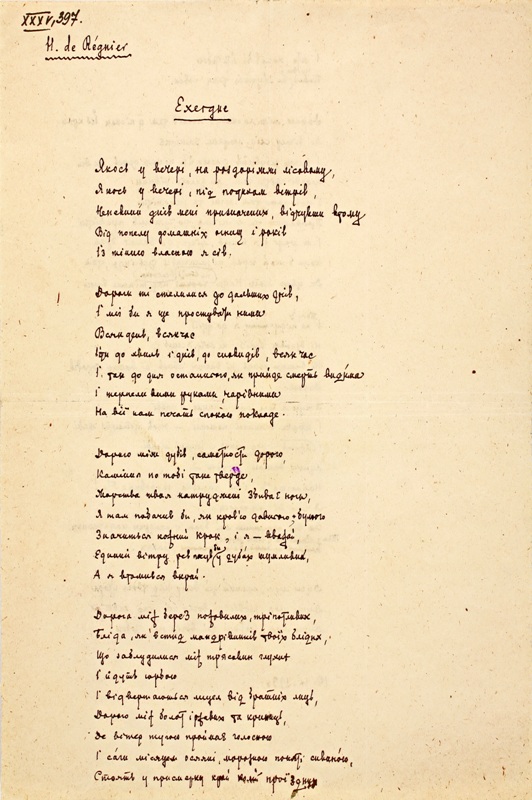 XXXV, 397.
H. de Régnier
Exergue
Якось у вечері, на роздоріжжі лісовому,
Якось у вечері, під подихом вітрів,
Непевний днів мені призначених, відчувши втому
Від попелу домашніх огнищ і років
Із тінню власною я сів.
Дороги ті стелилися до дальших днів,
І міг би я ще простувати ними
Всякдень, всякчас
Іти до хвиль і днів, до сновидів, всякчас
І так до дня останнього, як прийде смерть видима
І терпеливими руками чарівними
На всі нам печать спокою покладе.
Дорого між дубів, самотності дорого,
Каміння по тобі таке тверде,
Жорства твоя натруджені збива́є ноги,
Я там побачив би, як кров'ю давнього, бу́лого
Значиться кожний крок, і я —
Єдиний вітру рев у дубах шумливих,
А я втомився вкрай.
Дорога між беріз похилих, тріпотливих,
Бліда, як встид мандрівників твоїх блідих,
Що заблудилися між трясовин глухих
І йдуть юрбою
І відвертаються лицем від братніх лиць,
Дорого між болот і ржавих та криниць,
Де вітер тугою пройняв голосною
І са́ги місяцем осяяні, морозною покриті сивино́ю,
Стоять у присмерку край